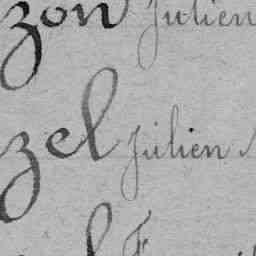 zon Julien
zel Julien